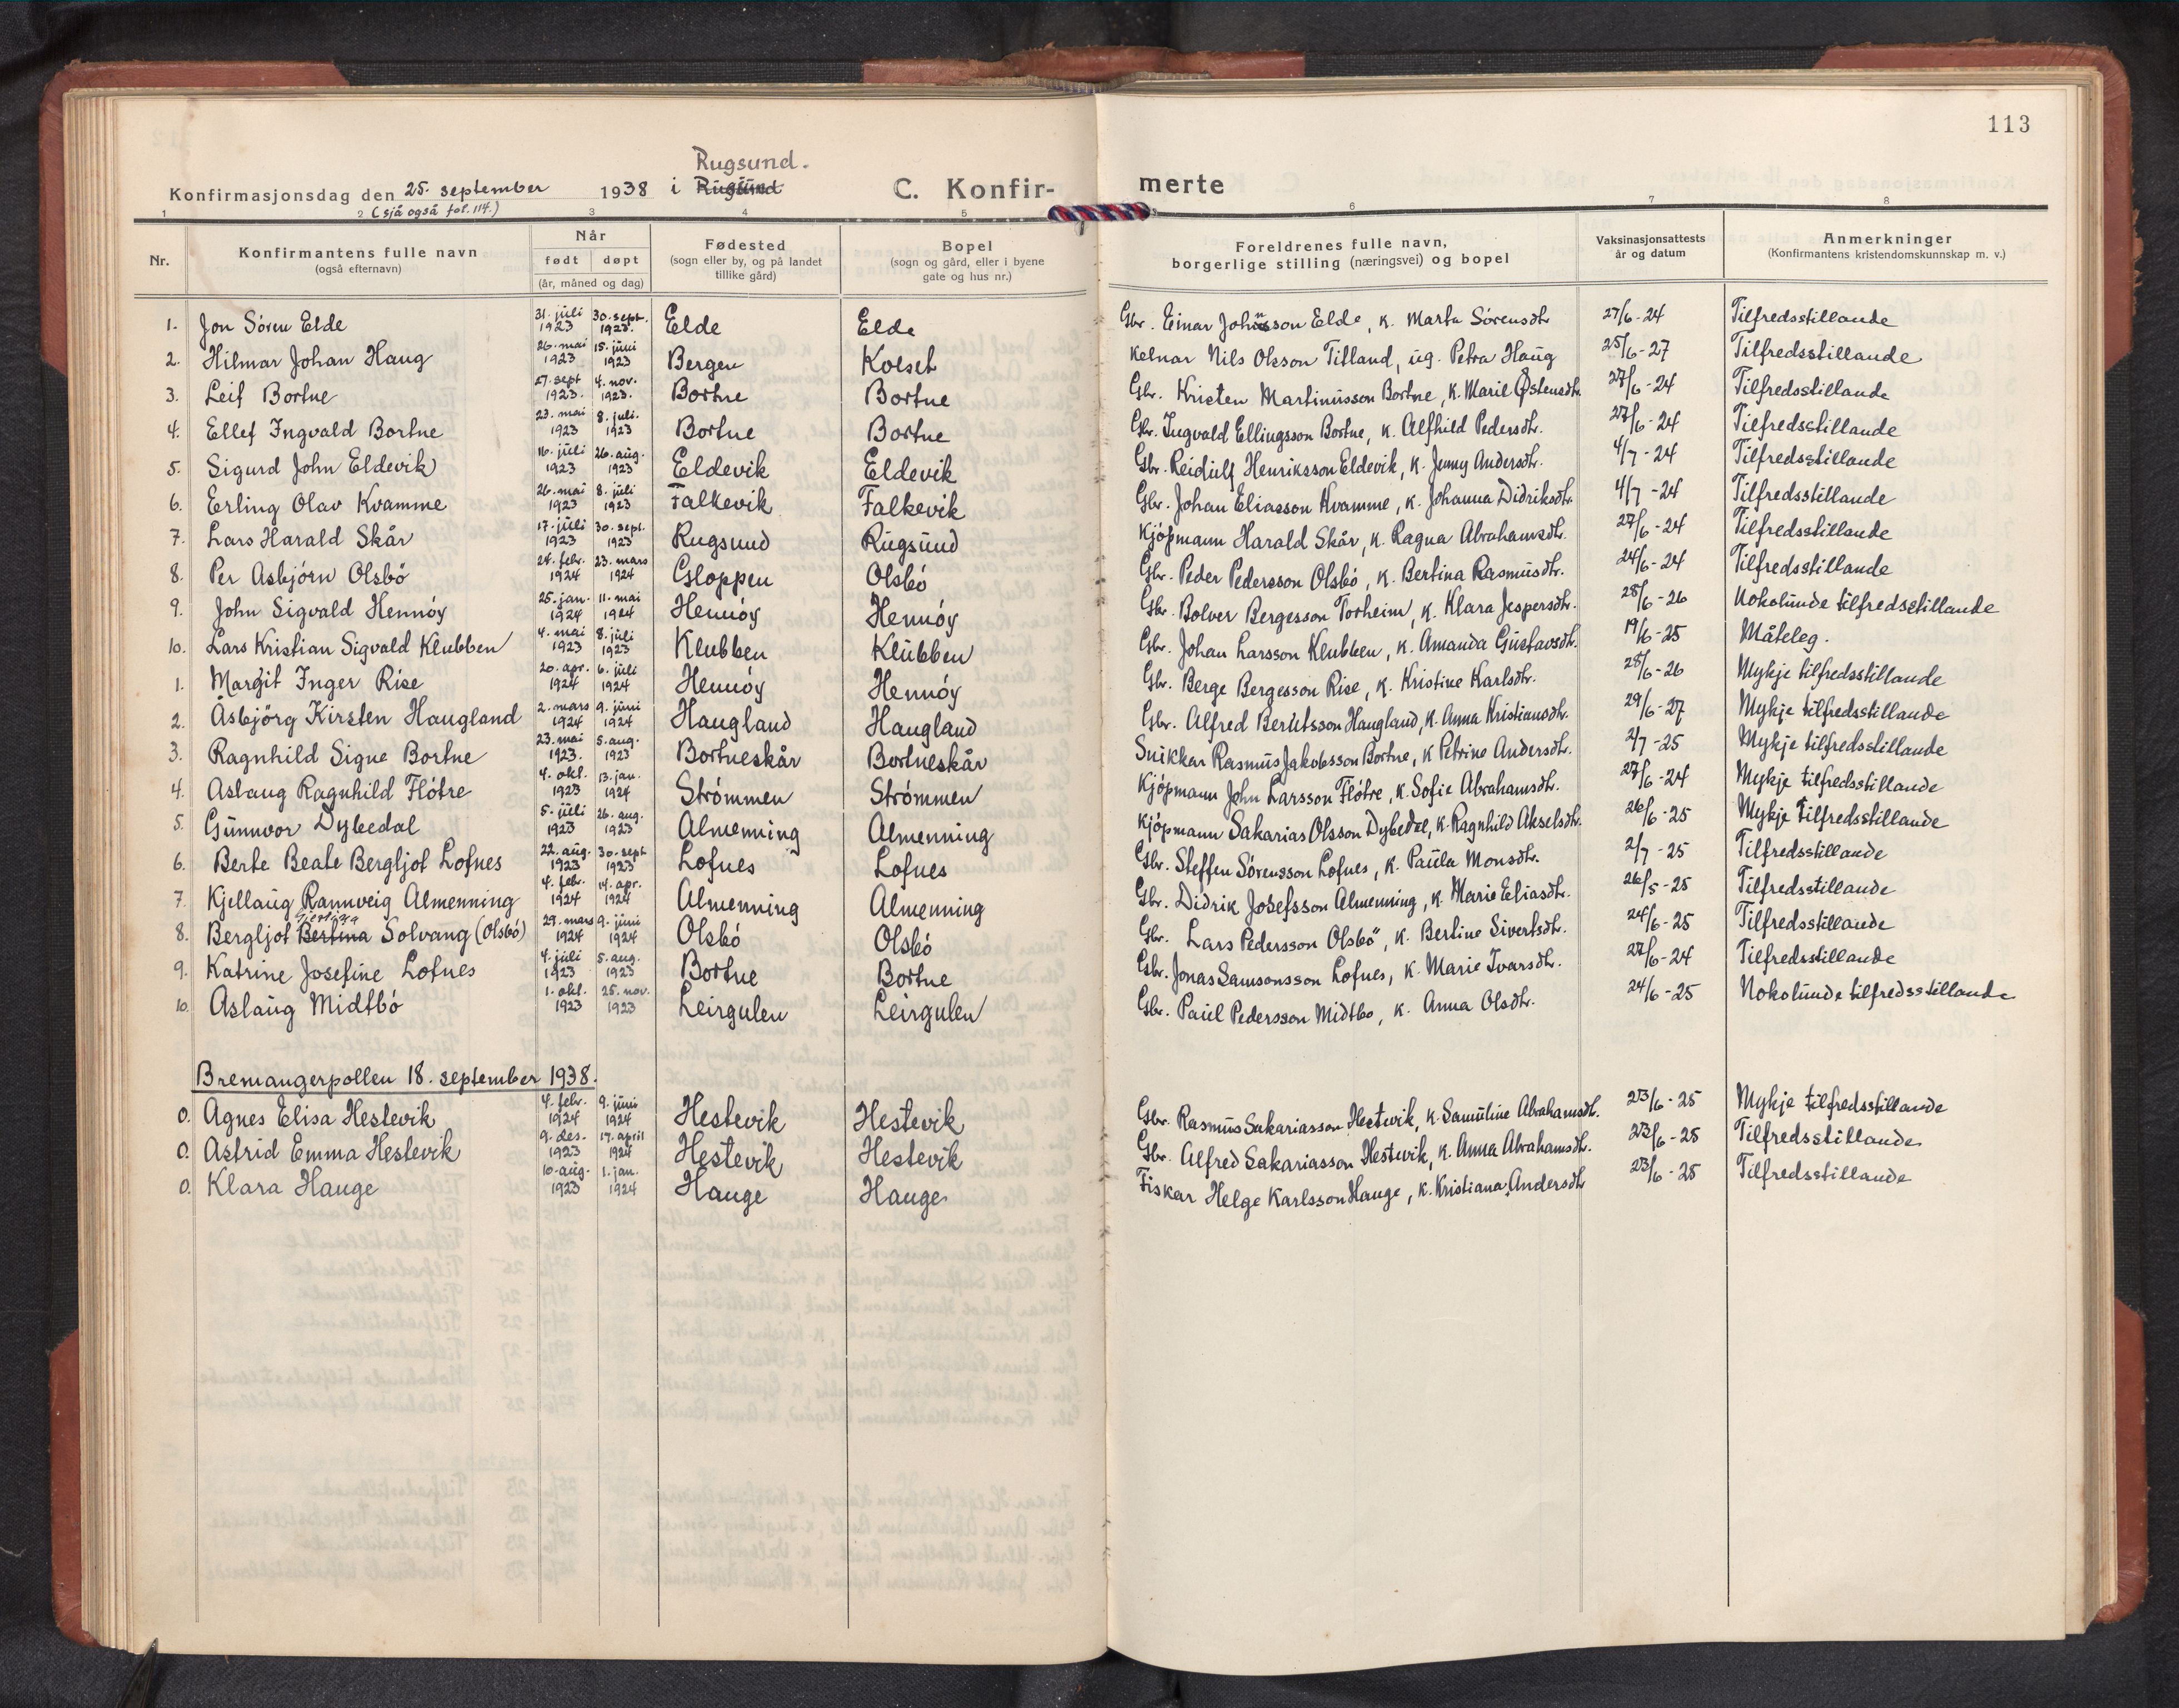 113
Rugsund.
Konfirmasjonsdag den 25. september 1938 i Rugsund C. Konfir- merte
(sjå også fol. 114.)
1 2 3 4 5 5 6 7 8
Nr. Konfirmantens fulle navn (også efternavn) Når født døpt (år, måned og dag) Fødested (sogn eller by, og på landet tillike gård) Bopel (sogn og gård, eller i byene gate og hus nr.) Foreldrenes fulle navn, borgerlige stilling (næringsvei) og bopel Vaksinasjonsattests år og datum Anmerkninger (Konfirmantens kristendomskunnskap m. v.)
1. Jon Sören Elde 31. juli 1923 30. sept. 1923. Elde Elde Gbr. Einar Johnsson Elde, k. Marta Sörensdtr 27/6-24 Tilfredsstillande
2. Hilmar Johan Haug 26. mai 1923 15. juni 1923 Bergen Kolset Kelnar Nils Olsson Titland, ug. Petra Haug 25/6-27 Tilfredsstillande
3. Leif Bortne 27. sept 1923. 4. nov. 1923. Bortne Bortne Gbr. Kristen Martinusson Bortne, k. Marie Østensdtr 27/6-24 Tilfredsstillande
4. Ellef Ingvald Bortne 23. mai 1923 8. juli. 1923 Bortne Bortne Gbr. Ingvald Ellingsson Bortne, k. Alfhild Pedersdtr. 27/6-24 Tilfredsstillande
5. Sigurd John Eldevik 16. juli 1923 26. aug. 1923 Eldevik Eldevik Gbr. Reidulf Henriksson Eldevik, k. Jenny Andersdtr. 4/7-24 Tilfredsstillande
6. Erling Olav Kvamme 26. mai 1923 8. juli 1923 Falkevik Falkevik Gbr. Johan Eliasson Kvamme, k. Johanna Didriksdtr. 4/7-24 Tilfredsstillande
7. Lars Harald Skår 17. juli 1923 30. sept. 1923 Rugsund Rugsund Kjöpmann Harald Skår, k. Ragna Abrahamsdtr. 27/6-24 Tilfredsstillande
8. Per Asbjörn Olsbö 24. febr. 1924 23. mars 1924 Gloppen Olsbö Gbr. Peder Pedersson Olsbö, k. Bertina Rasmusdtr. 24/6-24 Tilfredsstillande
9. John Sigvald Hennöy 25. jan. 1924 11. mai 1924 Hennöy Hennöy Gbr. Bolver Bergesson Torheim, k. Klara Jespersdtr. 28/6-26 Nokolunde tilfredsstillande
10. Lars Kristian Sigvald Klubben 4. mai 1923 8. juli 1923 Klubben Klubben Gbr. Johan Larsson Klubben, k. Amanda Gustavsdtr. 19/6-25 Måteleg.
1. Margit Inger Rise 20. apr. 1924 6. juli 1924 Hennöy Hennöy Gbr. Berge Bergesson Rise, k. Kristine Karlsdtr. 28/6-26 Mykje tilfredsstillande
2. Åsbjörg Kirsten Haugland 2. mars 1924 9. juni 1924 Haugland Haugland Gbr. Alfred Berntsson Haugland, k. Anna Kristiansdtr. 29/6-27 Mykje tilfredsstillande
3. Ragnhild Signe Bortne 23. mai 1923. 5. aug. 1923 Bortneskår Bortneskår Snikkar Rasmus Jakobsson Bortne, k Petrine Andersdtr. 2/7-25 Mykje tilfredsstillande
4. Aslaug Ragnhild Flötre 4. okt. 1923 13. jan. 1924 Strömmen Strömmen Kjöpmann John Larsson Flötre, k. Sofie Abrahamsdtr. 27/6-24 Mykje tilfredsstillande
5. Gunnvor Dybedal 5. juli 1923 26. aug. 1923 Almenning Almenning Kjöpmann Sakarias Olsson Dybedal, k. Ragnhild Akselsdtr. 26/6-25 Mykje tilfredsstillande
6. Berte Beate Bergljot Lofnes 22. aug. 1923 30. sept 1923 Lofnes Lofnes Gbr. Steffen Sörensson Lofnes, k. Paula Monsdtr. 2/7-25 Tilfredsstillande
7. Kjellaug Rannveig Almenning 4. febr. 1924 14. apr. 1924 Almenning Almenning Gbr. Didrik Josefsson Almenning, k. Marie Eliasdtr. 26/5-25 Tilfredsstillande
8. Bergljot Bertina Solvang (Olsbö) 29. mars 1924 9. juni 1924 Olsbö Olsbö Gbr. Lars Pedersson Olsbö, k. Bertine Sivertsdtr. 24/6-25 Tilfredsstillande
9. Katrine Josefine Lofnes 4. juli 1923 5. aug. 1923 Bortne Bortne Gbr. Jonas Samsonsson Lofnes, k. Marie Ivarsdtr. 27/6-24 Tilfredsstillande
10. Aslaug Midtbö 1. okt. 1923 25. nov. 1923 Leirgulen Leirgulen Gbr. Paul Pedersson Midtbo, k. Anna Olsdtr. 24/6-25 Nokolunde tilfredsstillande
Bremangerpollen 18. september 1938.
0. Agnes Elisa Hestevik 4. febr. 1924 9. juni 1924 Hestevik Hestevik Gbr. Rasmus Sakariasson Hestevik, k. Samuline Abrahamsdtr. 23/6-25 Mykje tilfredsstillande
0. Astrid Emma Hestevik 9. des. 1923 17. april 1924 Hestevik Hestevik Gbr. Alfred Sakariasson Hestevik, k. Anna Abrahamsdtr. 23/6-25 Tilfredsstillande
0. Klara Hauge 10. aug. 1923 1. jan. 1924 Hauge Hauge Fiskar Helge Karlsson Hauge, k. Kristiana Andersdtr 23/6-25 Tilfredsstillande